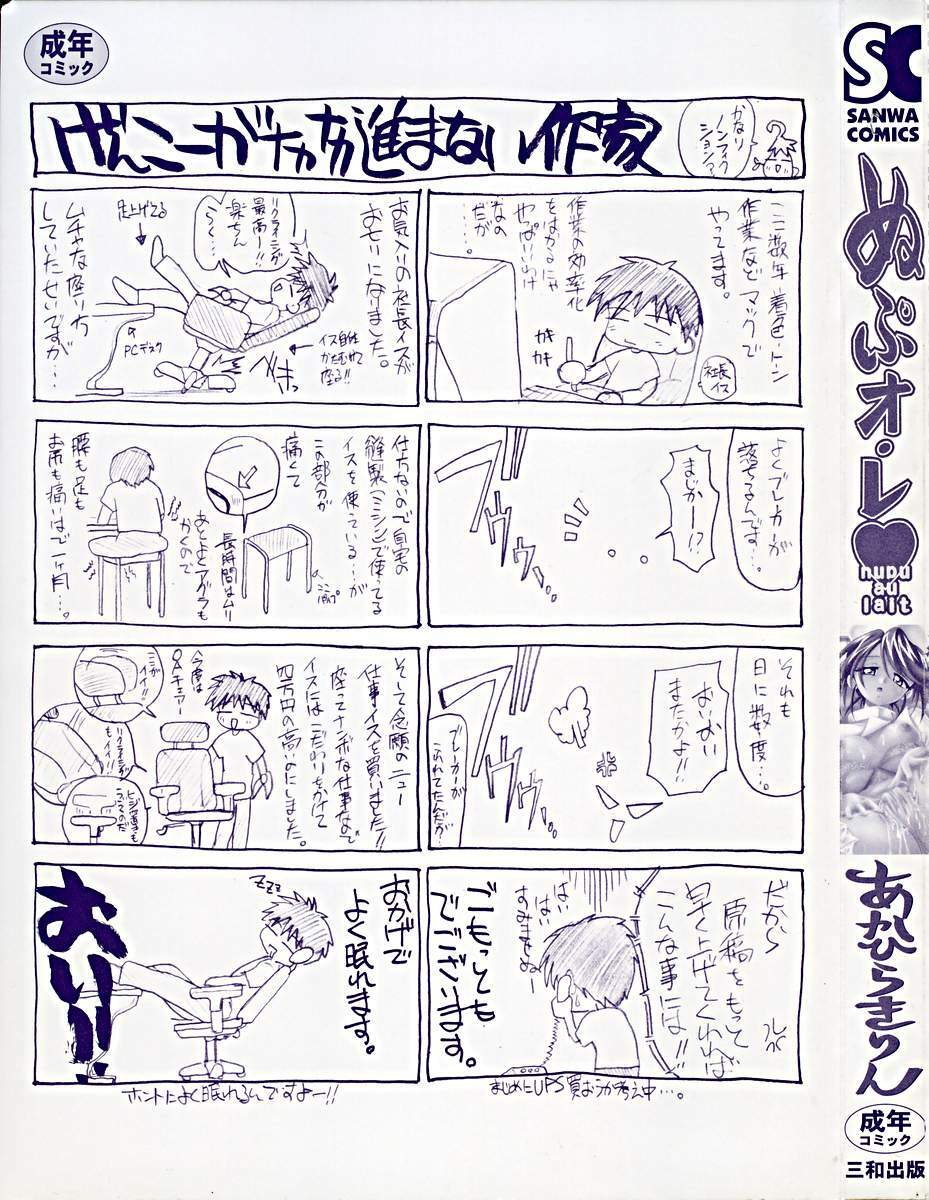 成年
コミック
げんこーがなかなか進まない作家
かなり
ノンフィク
ションマ
ここ数年 着色・トン
作業など マックで
やってます。
作業の効率化
をはかるにゃ
やっぱいいわけ
なの
だが
……
カキ
カキ
社長
イス
よくブレーカーが
落ちるんです…
まじかー!?
ブッ
それも
日に数度…
おいおい
またかよ!!
ブレーカーが
ブッ
だから
原稿をもって
早く上げてくれれば
こんな事には!!
はい
はい
すみません
ごもっとも
でございます。
まじめにUPS買おうか考え中…。
お気入りの社長イスが
おしゃかになりました。
リクライニングが
最高ー!!
楽ちん
足上げてる
PCデスク
イス自体
かたむけて
座る!!
ムチャな座り方
していたせいですが…
仕方ないので自宅の
縫製(ミシン)で使ってる
イスを使っている…が
この部分が
痛くて
長時間はムリ
おとよとアグラも
かくので
腰も足も
お尻も痛いはで一ヶ月…。
そして念願のニュー
仕事イスを買いました!!
座ってナンボな仕事なので
イスにはこだわりをかけて
四万円の高いのにしました。
今度は
OAチェアー
ここが
イイ!!
リクライニングが
もイイ!!
おかげで
よく眠れます。
ZZZ
おい!!
ホントによく眠れるんですよー!!
SC
SANWA
COMICS
ぬぷオ・レ
nupu
au
lait
あかひらきりん
成年
コミック
三和出版